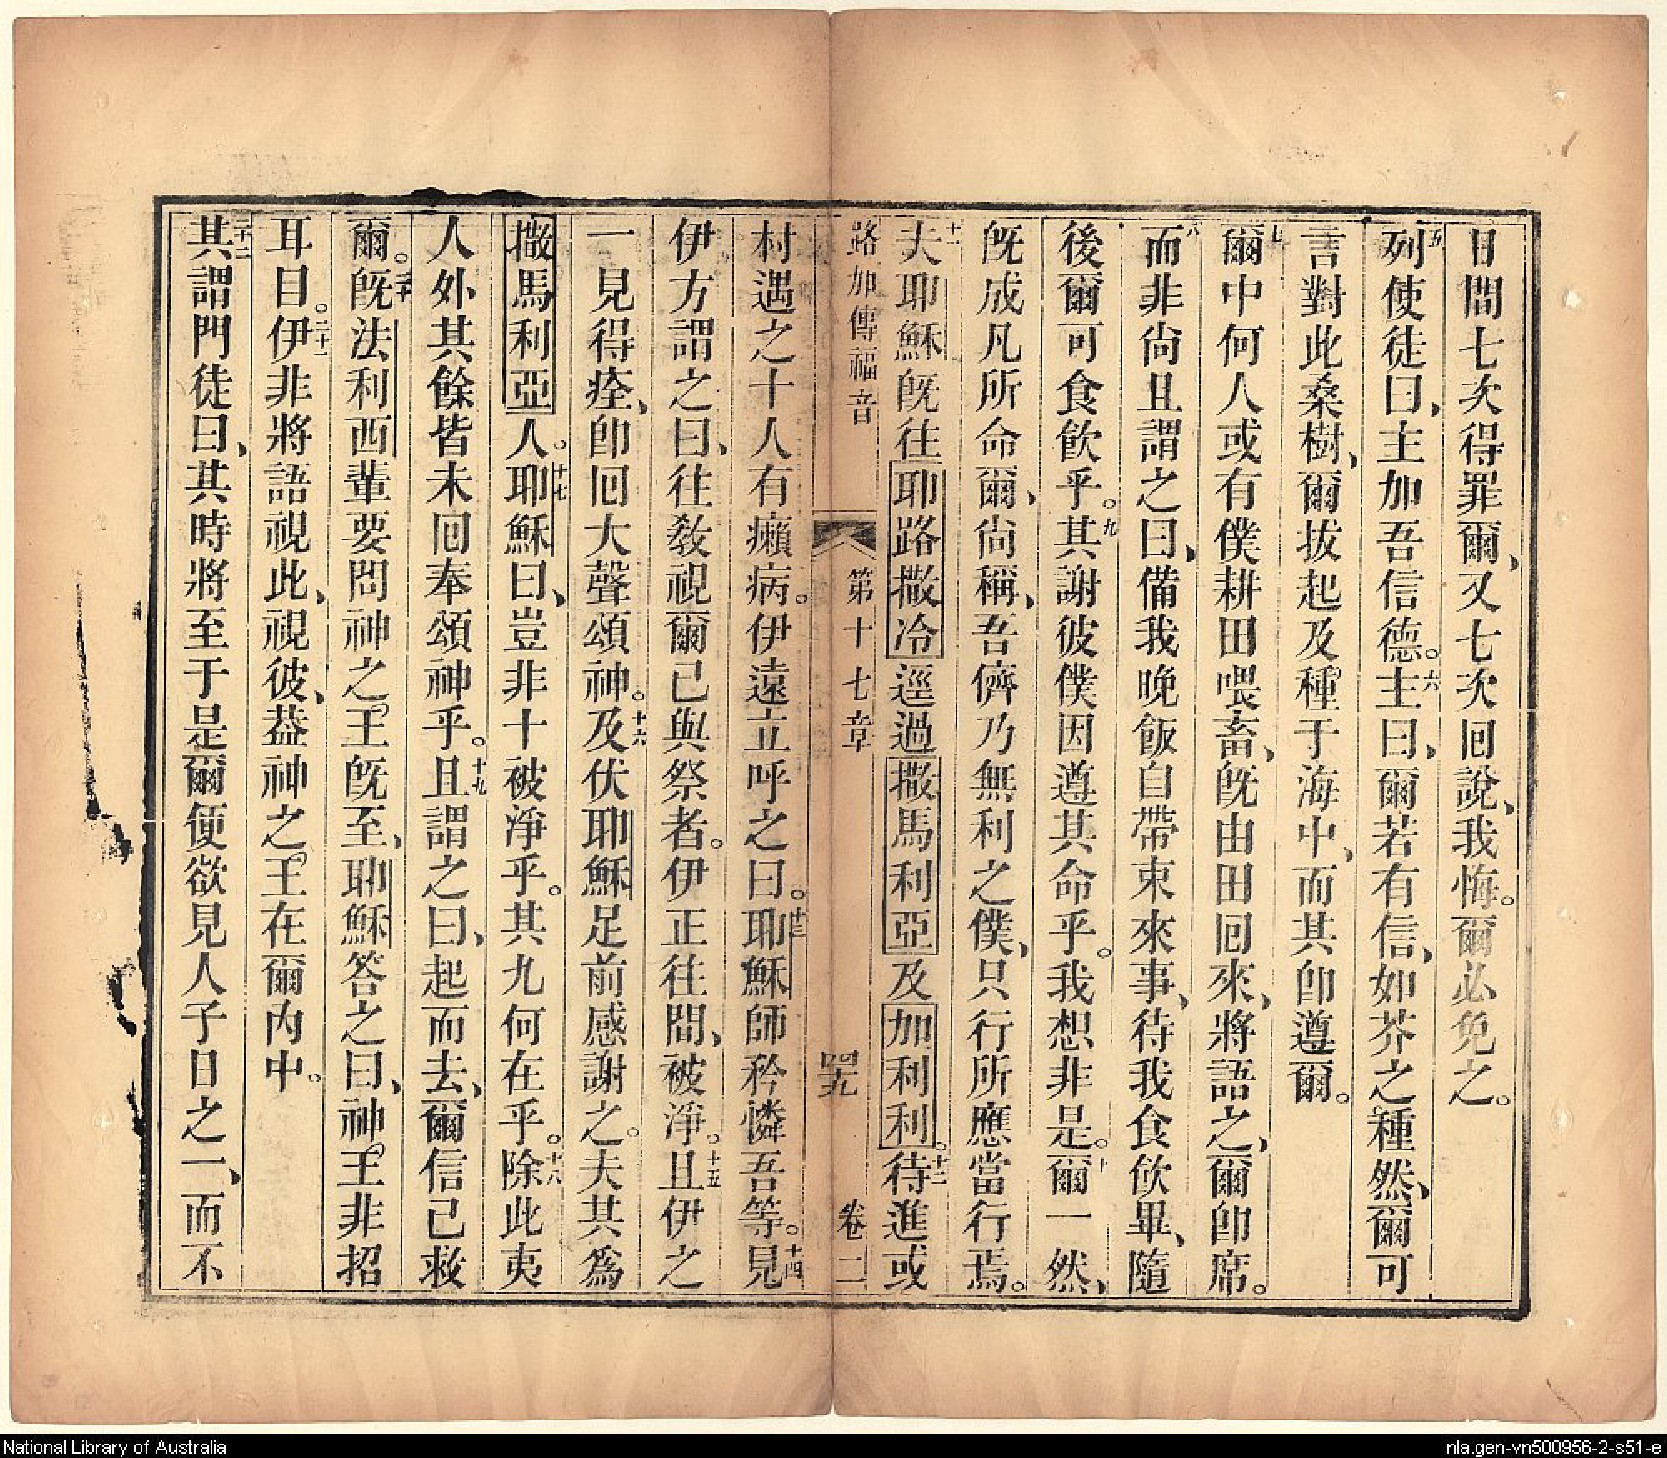 日間七次得罪爾、又七次回說、我悔。爾必免之。
五列使徒曰、主加吾信德。六主曰、爾若有信、如芥之種然、爾可
言對此桑樹、爾拔起及種于海中、而其卽遵爾。
七爾中何人或有僕耕田喂畜、旣由田回來、將語之、爾卽席。
八而非尙且謂之曰、備我晚飯自帶束來事、待我食飲畢、隨
後爾可食飲乎。九其謝彼僕因遵其命乎。我想非是。十爾一然、
旣成凡所命爾、尙稱、吾儕乃無利之僕、只行所應當行焉。
十一夫耶穌旣往耶路撒冷逕過撒馬利亞及加利利。十二待進或
路加傳福音 第十七章 四九 卷二
村遇之十人有癩病。伊遠立呼之曰。十三耶穌師矜憐吾等。十四見
伊方謂之曰、往敎視爾己與祭者。伊正往間、被淨。十五且伊之
一見得痊、卽回大聲頌神。十六及伏耶穌足前感謝之。夫其爲
撒馬利亞人。十七耶穌曰、豈非十被淨乎。其九何在乎。十八除此夷
人外其餘皆未回奉頌神乎。十九且謂之曰、起而去、爾信已救
爾。二十旣法利西輩要問神之王旣至、耶穌答之曰、神王非招
耳目。二十一伊非將語視此、視彼、蓋神之王在爾內中。
二十二其謂門徒曰、其時將至于是爾便欲見人子日之一、而不
National Library of Australia
nla.gen-vn500956-2-s51-e